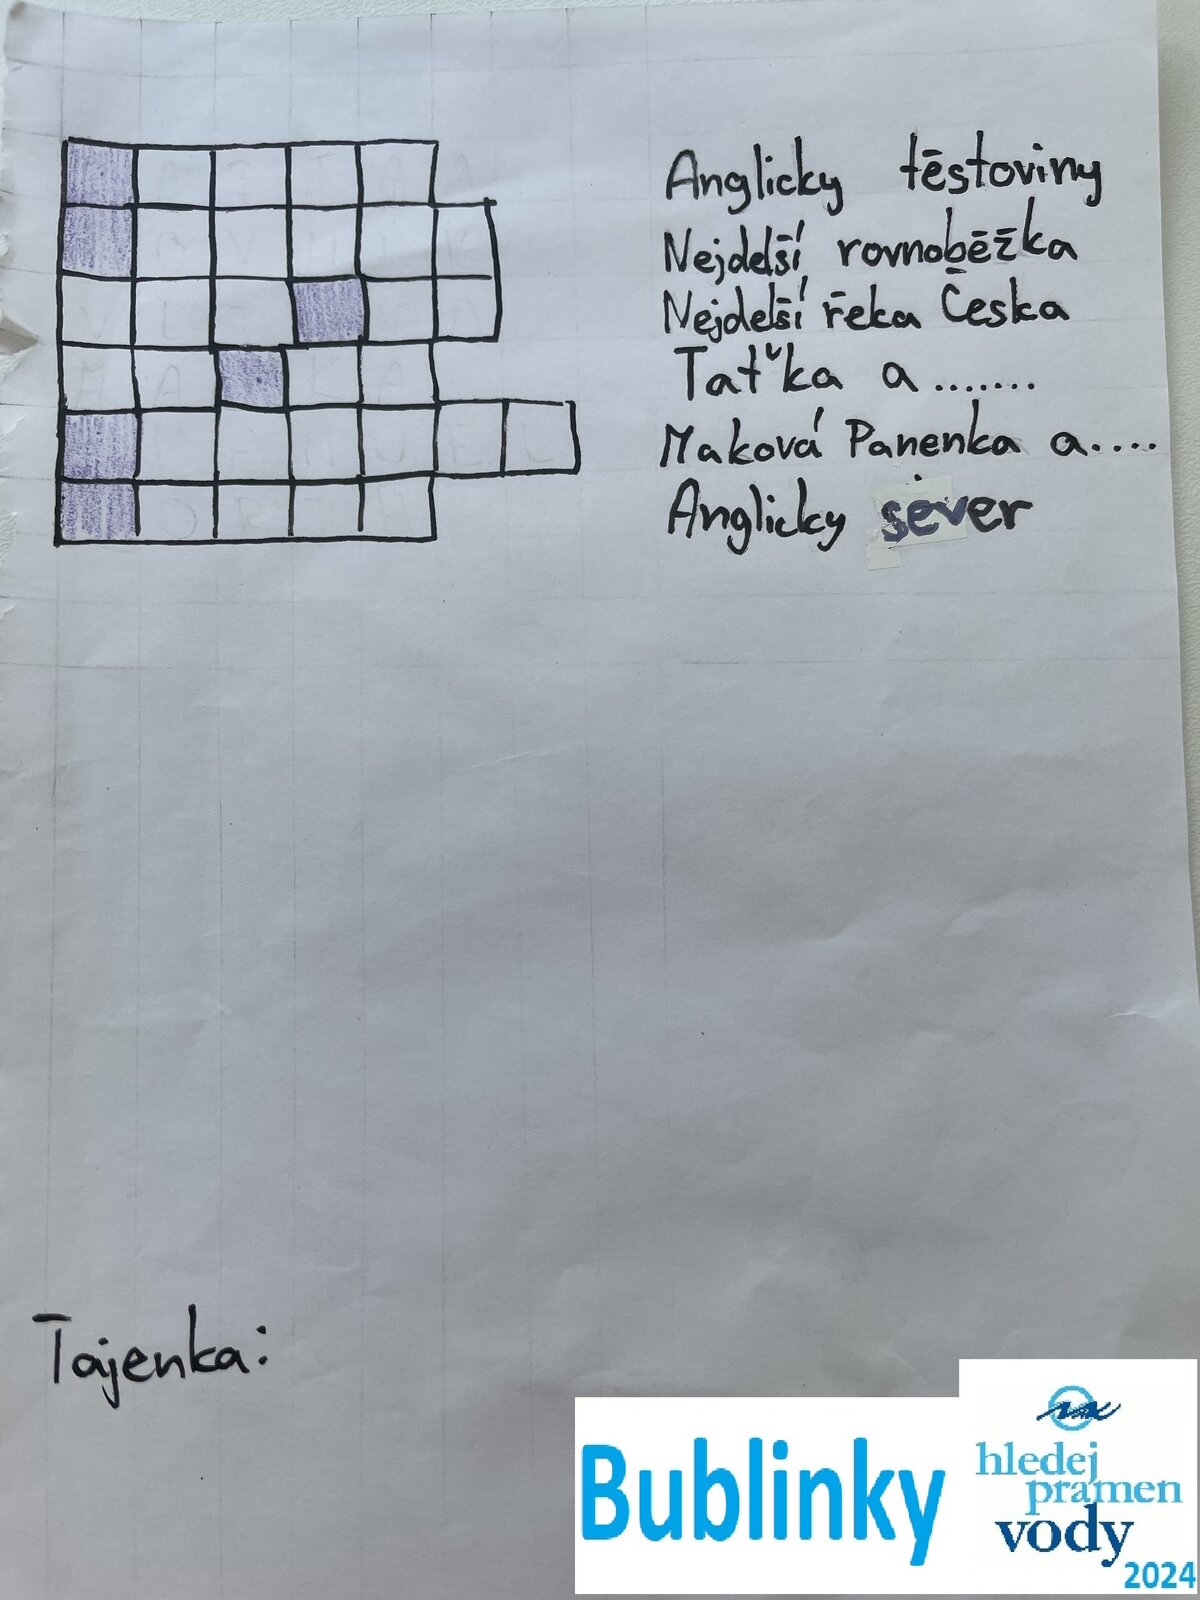 Anglicky těstoviny
Nejdelší rovnoběžka
Nejdelší řeka Česka
Taťka a .......
Maková Panenka a....
Anglicky sever
Tajenka:
Bublinky
hledej
pramen
vody
2024